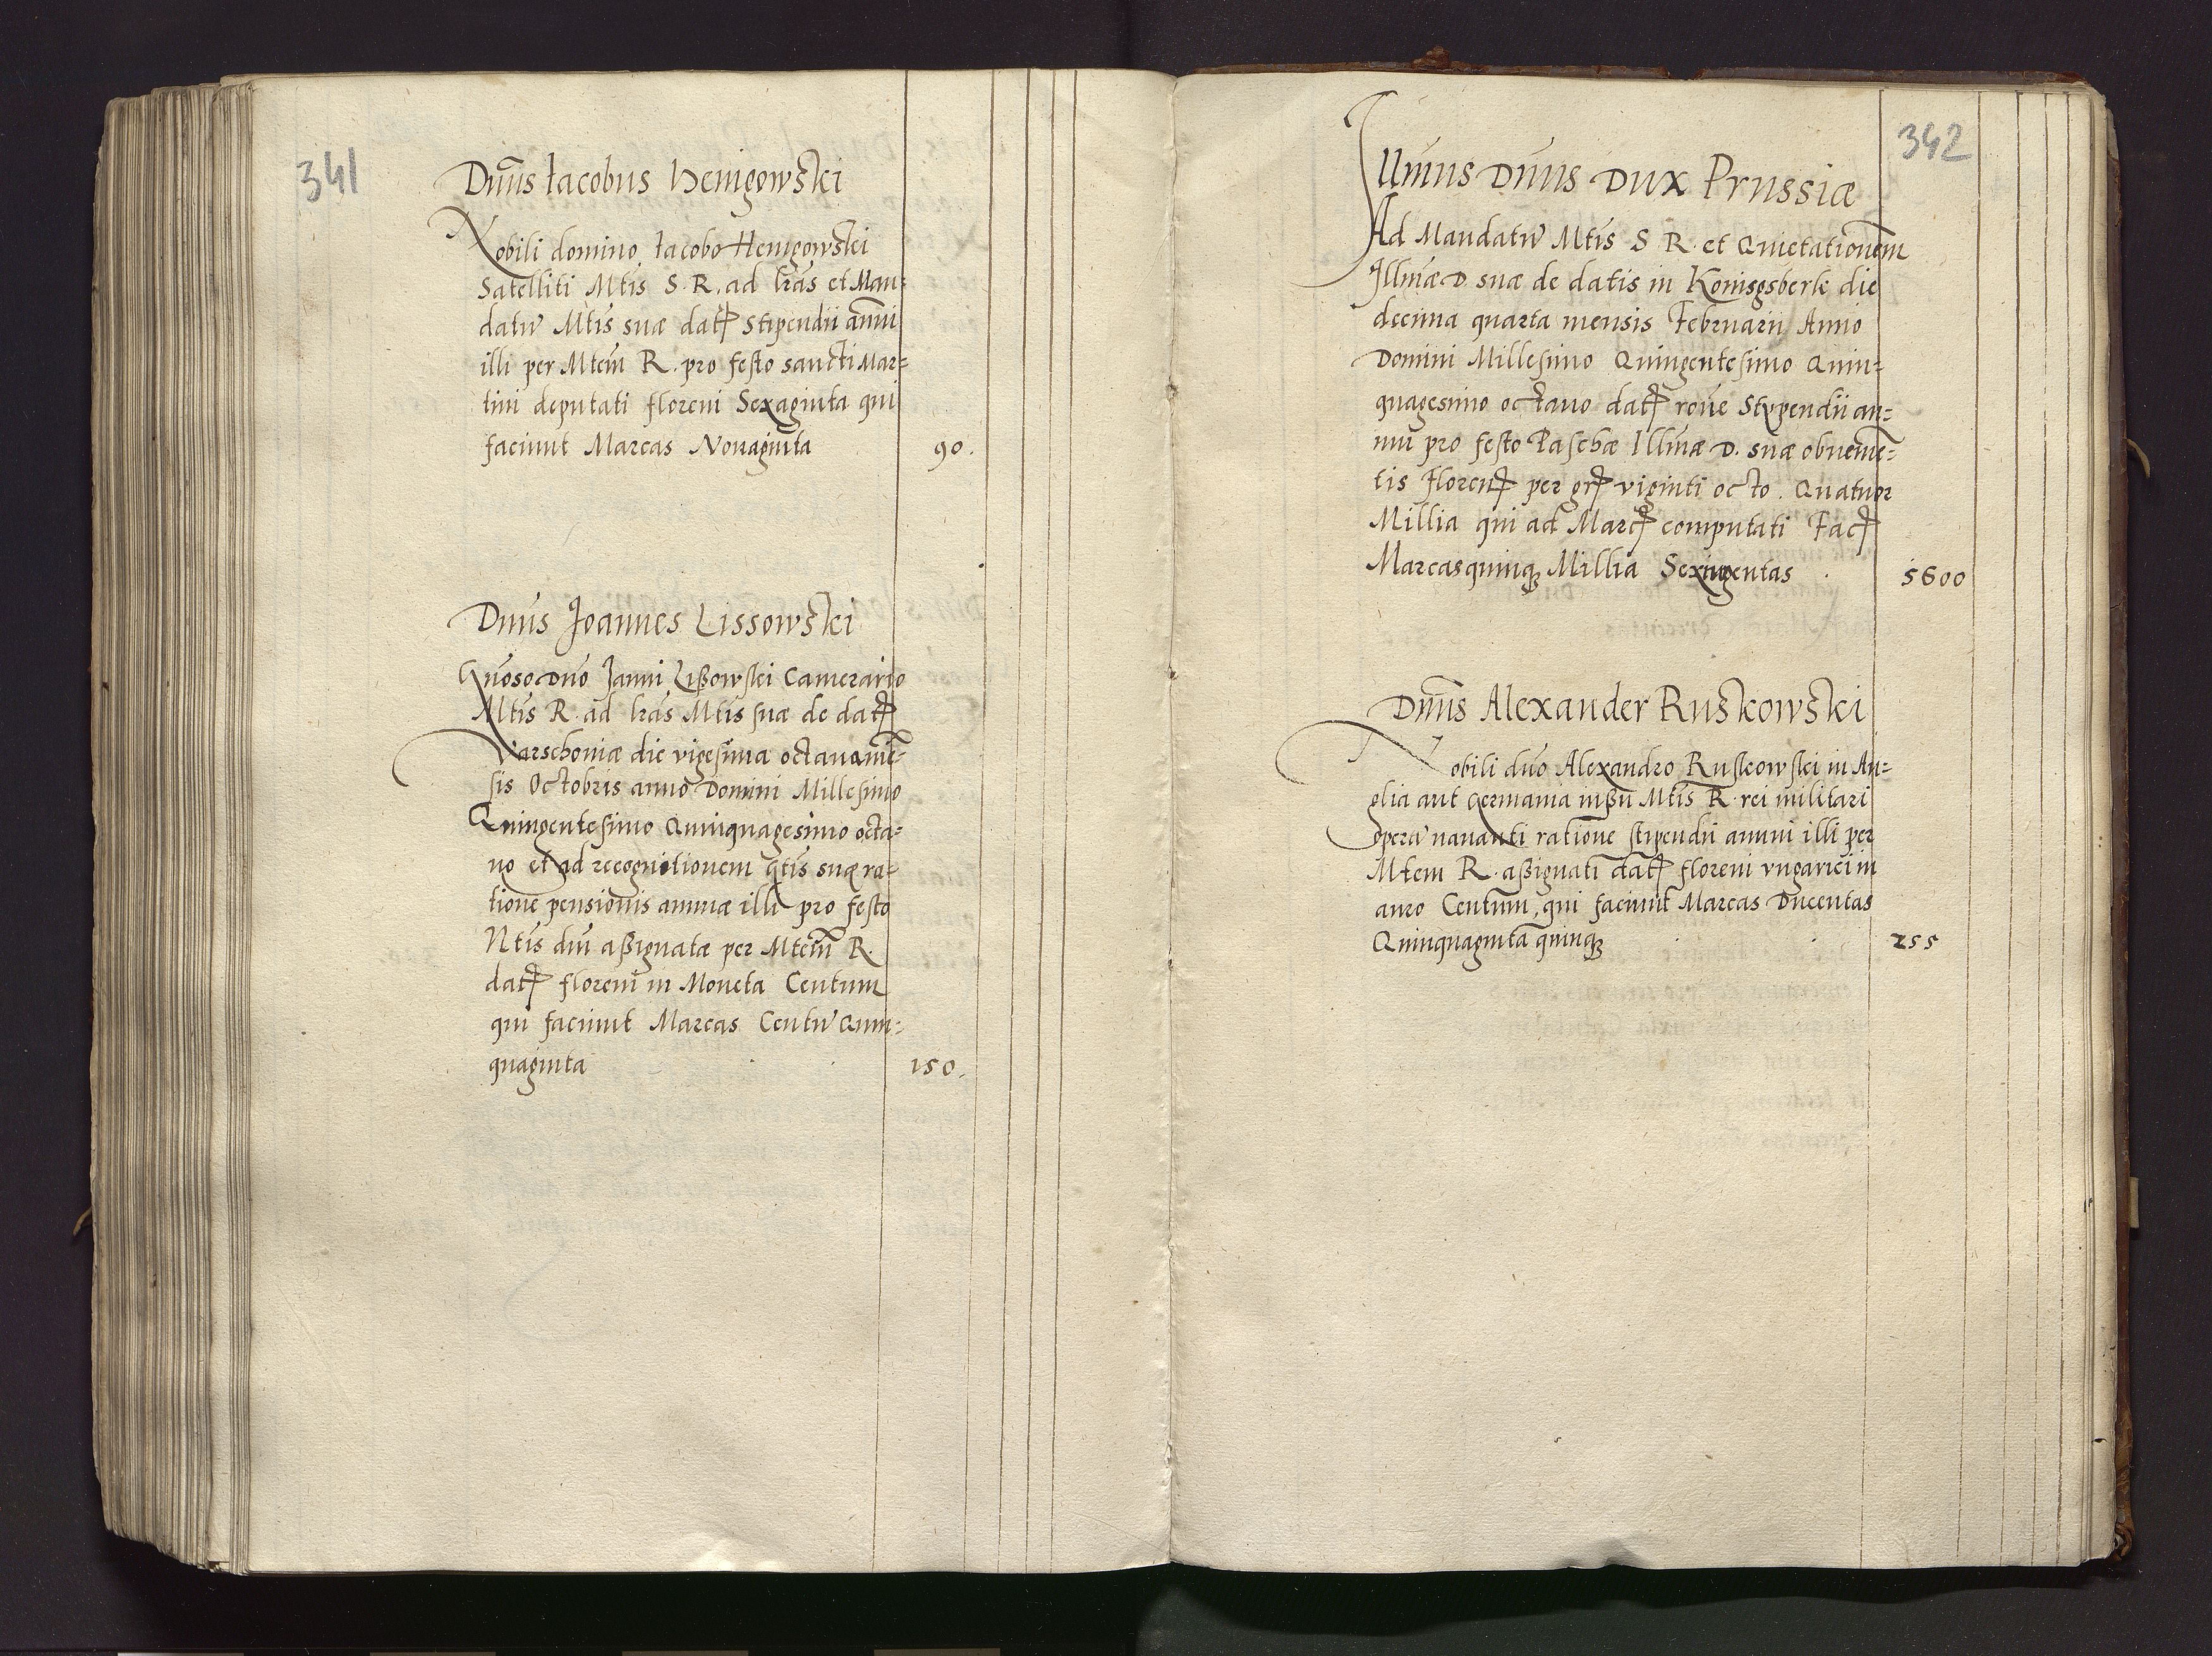 341
Dnūs Iacobus Henigowski
Nobili domino Iacobo Henigowski
Satelliti Mtis S. R. ad lrās et Man=
datū Mtis suæ datꝭ stipendii annui
illi per Mtem R. pro festo sancti Mar=
tini deputati floreni Sexaginta qui
faciunt Marcas Nonaginta 90.
Dnūs Joannes Lissowski
Gnōso dnō Janni Lißowski Camerario
Mtis R. ad lrās Mtis suæ de datꝭ
Varschoniæ die vigesima octaua mē=
sis Octobris anno Domini Millesimo
Quingentesimo Quinquagesimo octa=
uo et ad recognitionem gtis suæ ra=
tione pensionis annuæ illi pro festo
Ntis dni aßignatæ per Mtem R.
datꝭ floreni in Moneta Centum
qui faciunt Marcas Centū Quin=
quaginta 150.
342
Illmus Dnūs Dux Prussiæ
Ad Mandatū Mtis S R. et Quietationem
Illmæ D. suæ de datis in Konisgsberk die
decima quarta mensis Februarii Anno
Domini Millesimo Quingentesimo Quin=
quagesimo octauo datꝭ rōne Stypendii an=
nui pro festo Paschæ Illmæ D. suæ obuenie=
tis Florenꝭ per grꝭ viginti octo. Quatuor
Millia qui ad Marcꝭ computati Facꝭ
Marcas quinqꝫ Millia Sexingentas 5600
Dnūs Alexander Ruskowski
Nobili dnō Alexandro Ruskowski in An=
glia aut Germania iußu Mtis R. rei militari
operā nauanti ratione stipendii annui illi per
Mtem R. aßignati datꝭ floreni vngarici in
auro Centum, qui faciunt Marcas Ducentas
Quinquaginta quinqꝫ 255